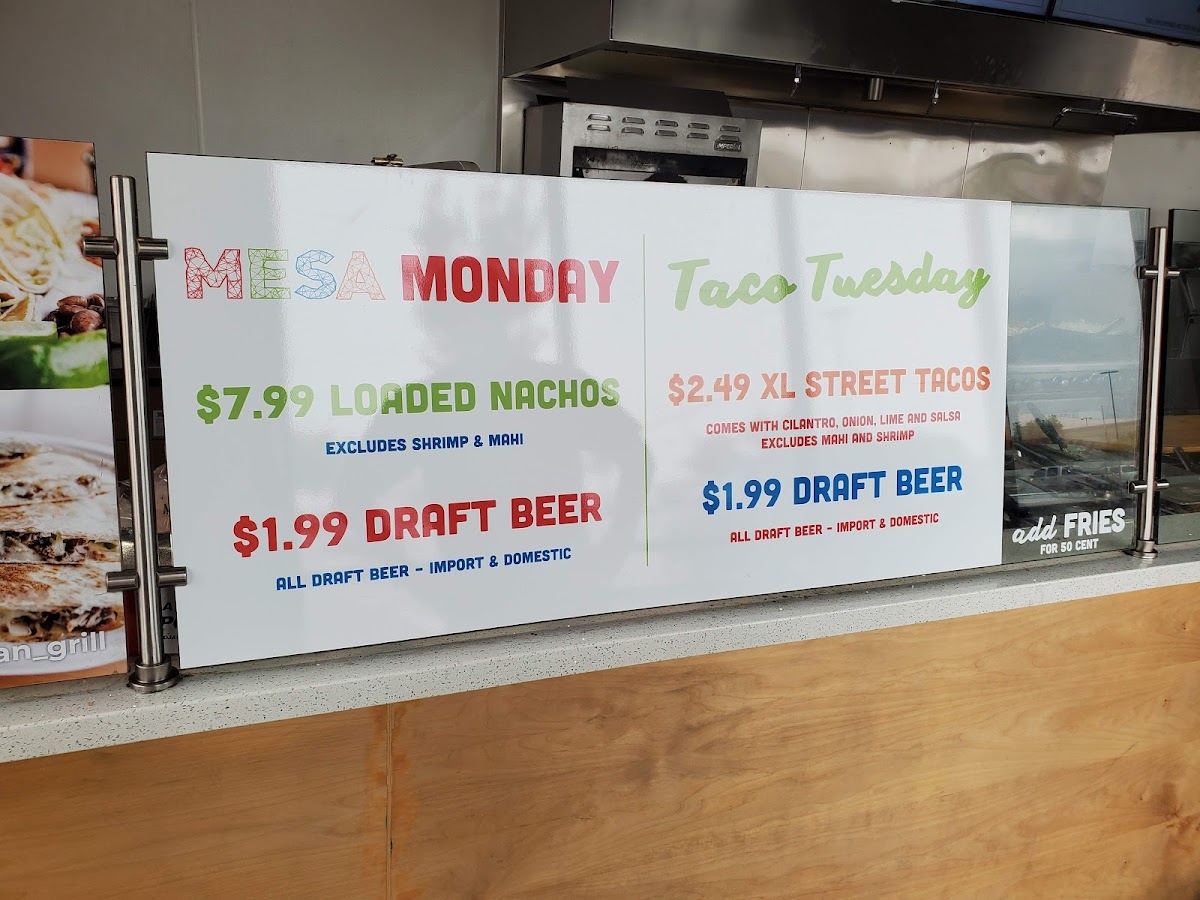 MESA MONDAY
$7.99 LOADED NACHOS
EXCLUDES SHRIMP & MAHI
$1.99 DRAFT BEER
ALL DRAFT BEER - IMPORT & DOMESTIC
Taco Tuesday
$2.49 XL STREET TACOS
COMES WITH CILANTRO, ONION, LIME AND SALSA
EXCLUDES MAHI AND SHRIMP
$1.99 DRAFT BEER
ALL DRAFT BEER - IMPORT & DOMESTIC
add FRIES
FOR 50 CENT
an_grill